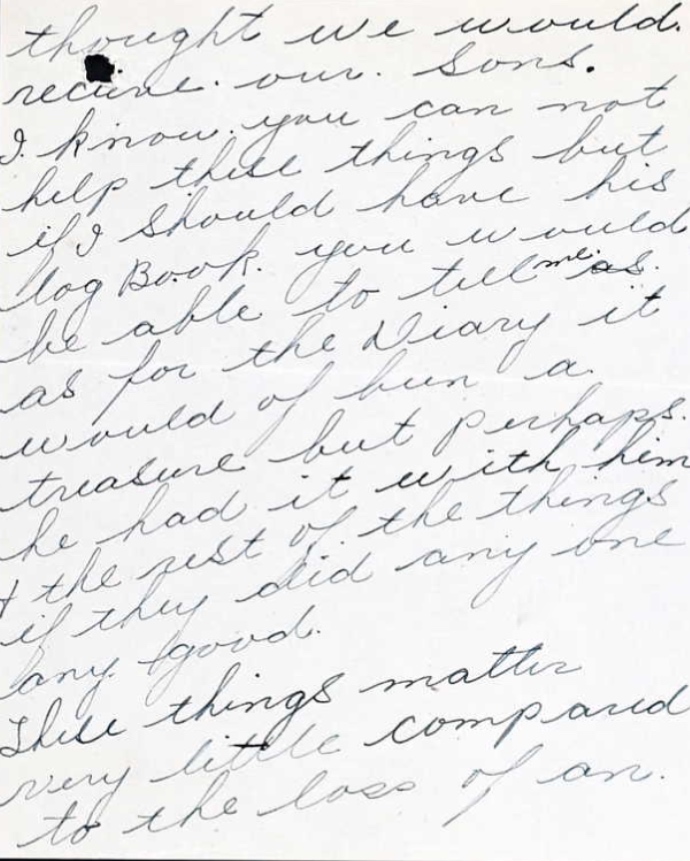 thought we would.
recieve. our. Sons.
I. know. you can not
help these things but
if I should have his
log Book. you would
be able to tell me. as.
as for the Diary it
would of been a
treasure but perhaps.
he had it with him
+ the rest of the things
if they did any one
any good.
These things matter
very little compared
to the loss of an.